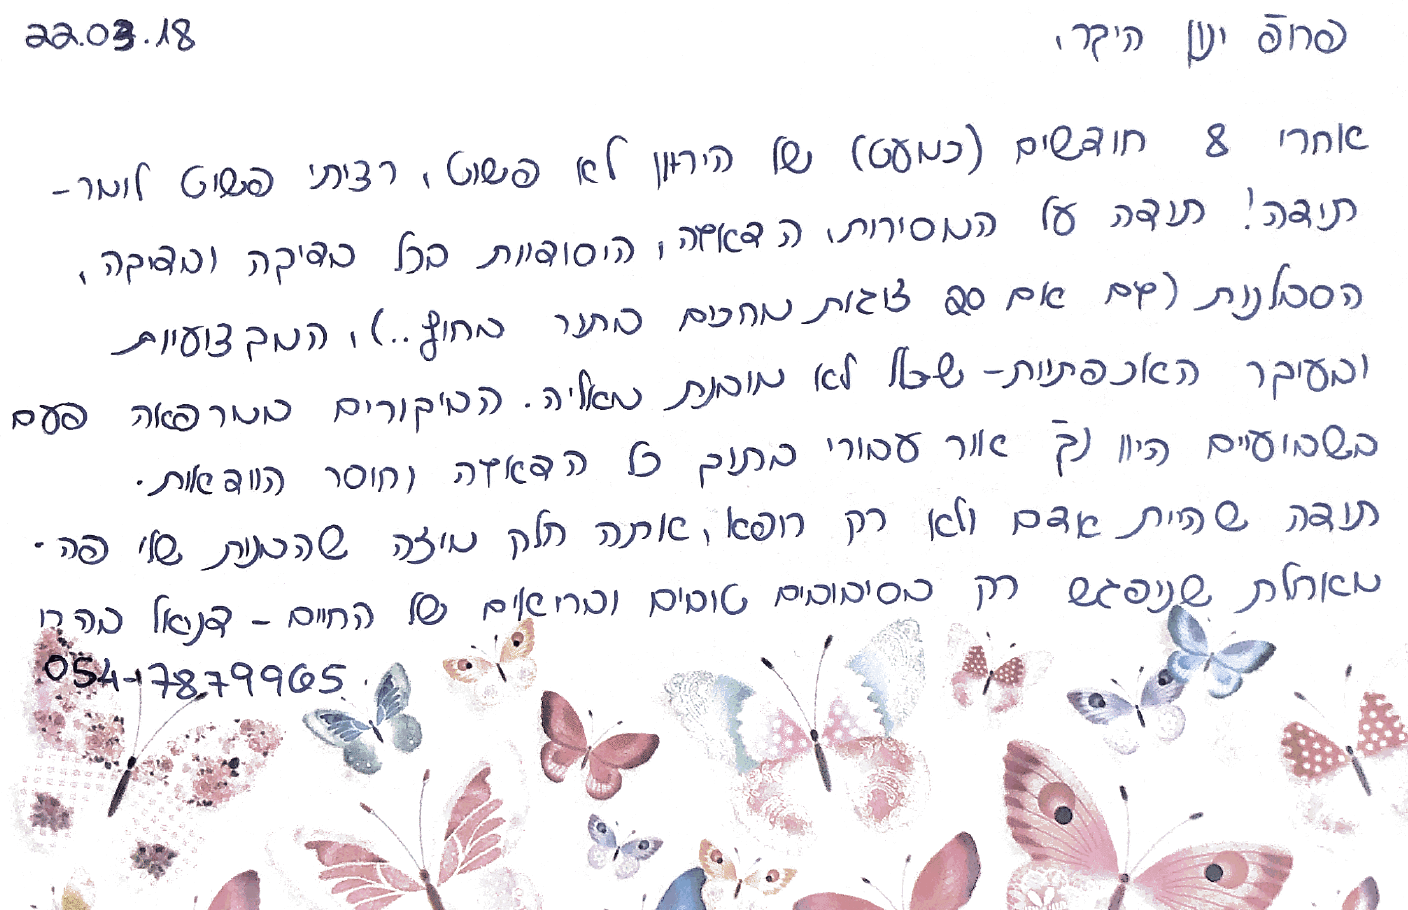 22.03.18
פרופ' ינון היקר,
אחרי 8 חודשים (כמעט) של היריון לא פשוט, רציתי פשוט לומר-
תודה! תודה על המסירות, הדאגה, היסודיות בכל בדיקה ובדיקה,
הסבלנות (גם אם 20 זוגות מחכים בתור בחוץ..), המקצועיות
ובעיקר האכפתיות- שכלל לא מובנת מאליה. הביקורים במרפאה פעם
בשבועיים היוו נק' אור עבורי בתוך כל הדאגה וחוסר הוודאות.
תודה שהיית אדם ולא רק רופא, אתה חלק מיזה שהבנות שלי פה.
מאחלת שניפגש רק בסיבובים טובים ובריאים של החיים - דניאל
054-7879965